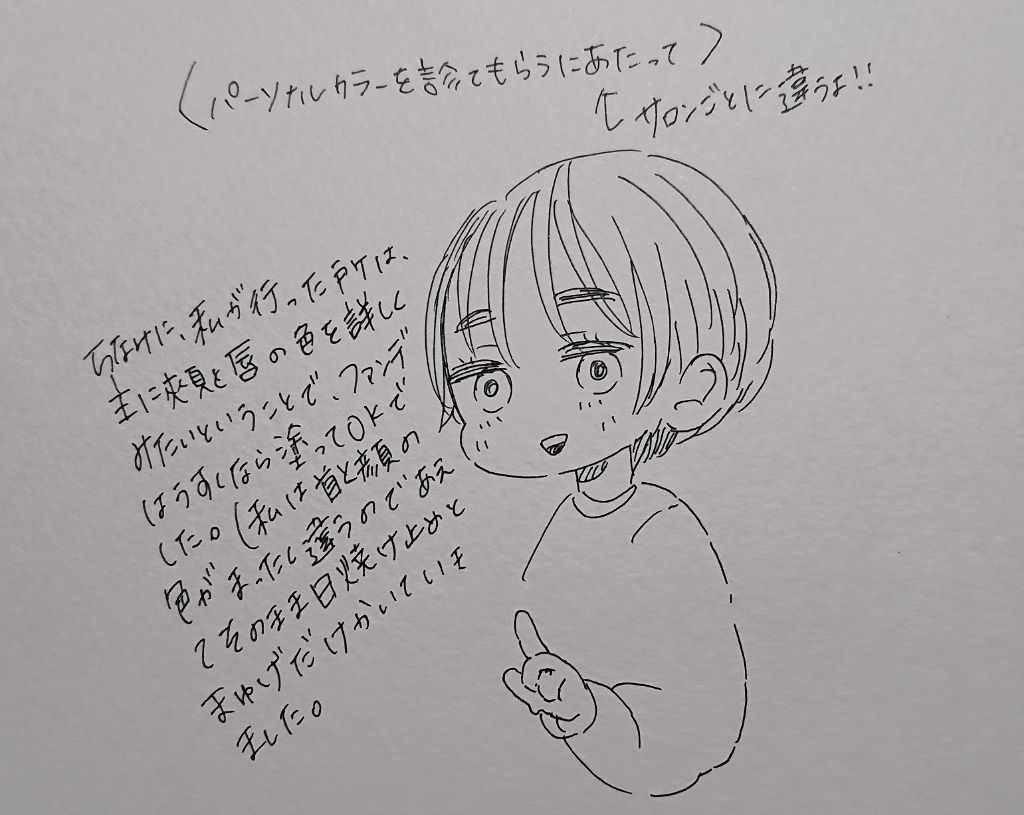 〈パーソナルカラーを診てもらうにあたって〉
↑サロンごとに違うよ!!
ちなみに、私が行った所は、
主に頬と唇の色を詳しく
みたいということで、ファンデ
はうすくなら塗ってOKで
した。(私は首と顔の
色がまったく違うのであえ
てそのまま日焼け止めと
まゆげだけかいていき
ました。